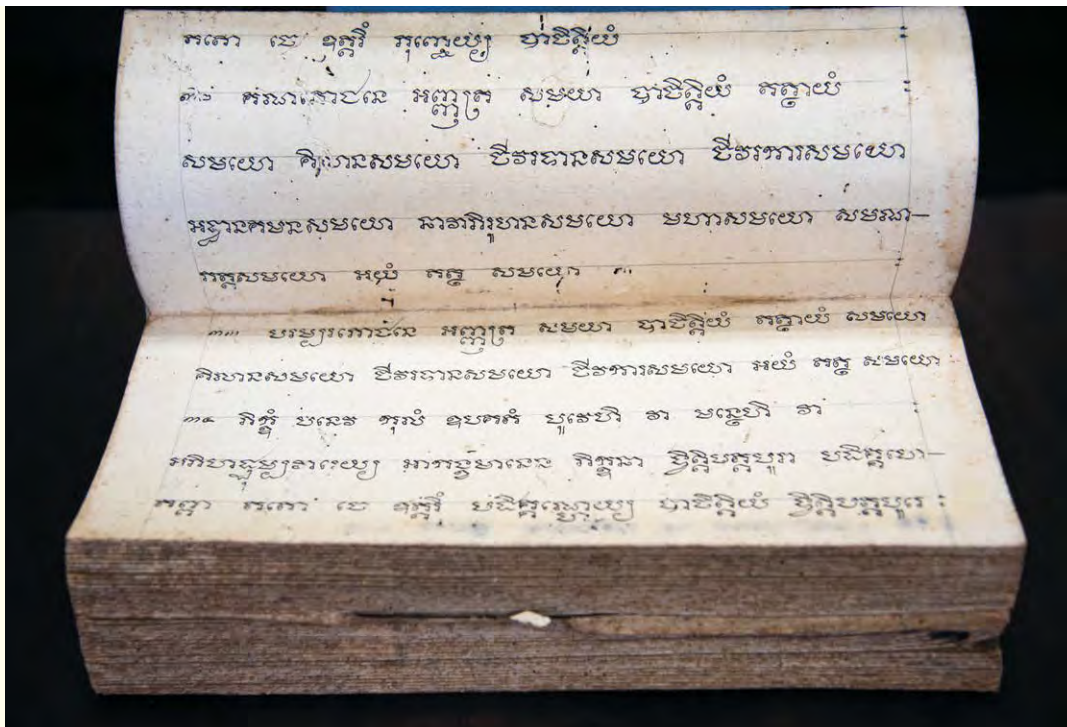 តតោ ចេ ឧត្តរិំ ភុញ្ជេយ្យ បាចិត្តិយំ
៣២ គណភោជនេ អញ្ញត្រ សមយា បាចិត្តិយំ តត្ថាយំ
សមយោ គិលានសមយោ ចីវរទានសមយោ ចីវរការសមយោ
អទ្ធានគមនសមយោ នាវាភិរូហានសមយោ មហាសមយោ សមណ–
ភត្តសមយោ អយំ តត្ថ សមយោ
៣៣ បរម្បរភោជនេ អញ្ញត្រ សមយា បាចិត្តិយំ តត្ថាយំ សមយោ
គិលានសមយោ ចីវរទានសមយោ ចីវការសមយោ អយំ តត្ថ សមយោ
៣៤ ភិក្ខុំ បនេវ កុលំ ឧបគតំ បូវេហិ វា មន្ថេហិ វា
អភិហដ្ឋុម្បវារេយ្យ អាកង្ខមានេន ភិក្ខុនា ទ្វិត្តិបត្តបូរា បដិគ្គហេ–
តព្ពា តតោ ចេ ឧត្តរិំ បដិគ្គណ្ហេយ្យ បាចិត្តិយំ ទ្វិត្តិបត្តបូរេ